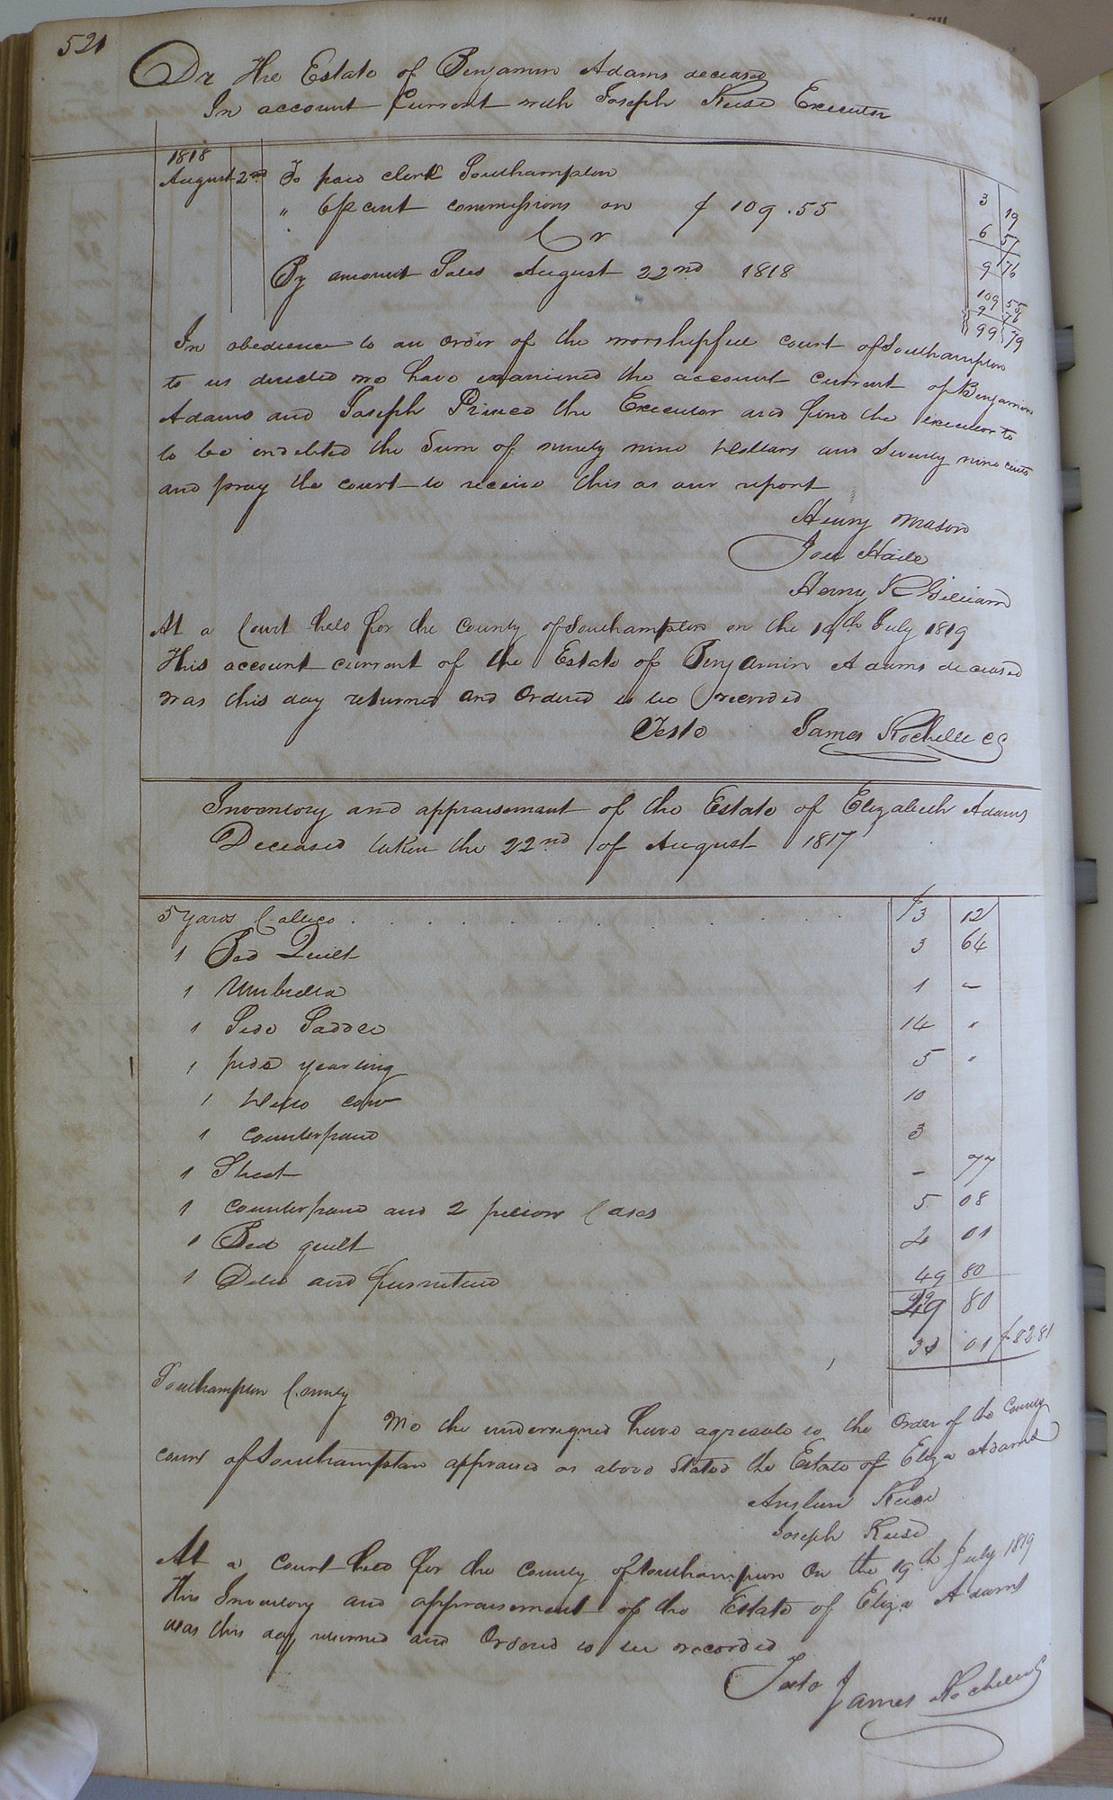 521
Dr The Estate of Benjamin Adams deceased
In account Current with Joseph Executor
1818
August 2nd To paid clerk Southampton 3 19
" 6 p cent commissions on $ 109.55 6 57
Cr 9 76
By amount Sales August 22nd 1818 109 55
9 76
99 79
In obedience to an order of the worshipfull court of Southampton
to us directed we have examined the account current of Benjamin
Adams and Joseph the Executor and find the executor to
to be indebted the Sum of ninety nine Dollars and Seventy nine cents
and pray the court to receive this as our report
Henry Mason
Jou Haile
Henry Gilliam
At a Court held for the County of Southampton on the 19th July 1819
This account current of the Estate of Benjamin Adams deceased
was this day returned and Ordered to be recorded
Teste James Rochelle CC
Inventory and appraisement of the Estate of Elizabeth Adams
Deceased taken the 22nd of August 1817
5 yards Callico . . . . . . . . $3 12
1 Bed Quilt 3 64
1 Umbrella 1 -
1 Side Saddle 14 "
1 yearling 5 "
1 cow 10
1 counterpane 3
1 Sheet - 77
1 counterpane and 2 pillow Cases 5 08
1 Bed quilt 01
1 Bed and furniture 49 80
49 80
33 01 $ 82 81
Southampton County
We the undersigned have agreeable to the Order of the County
court of Southampton appraised as above Stated the Estate of Eliza Adams
Joseph
At a court held for the County of Southampton On the 19th July 1819
This Inventory and appraisement of the Estate of Eliza Adams
was this day returned and Ordered to be recorded
Teste James Rochelle C